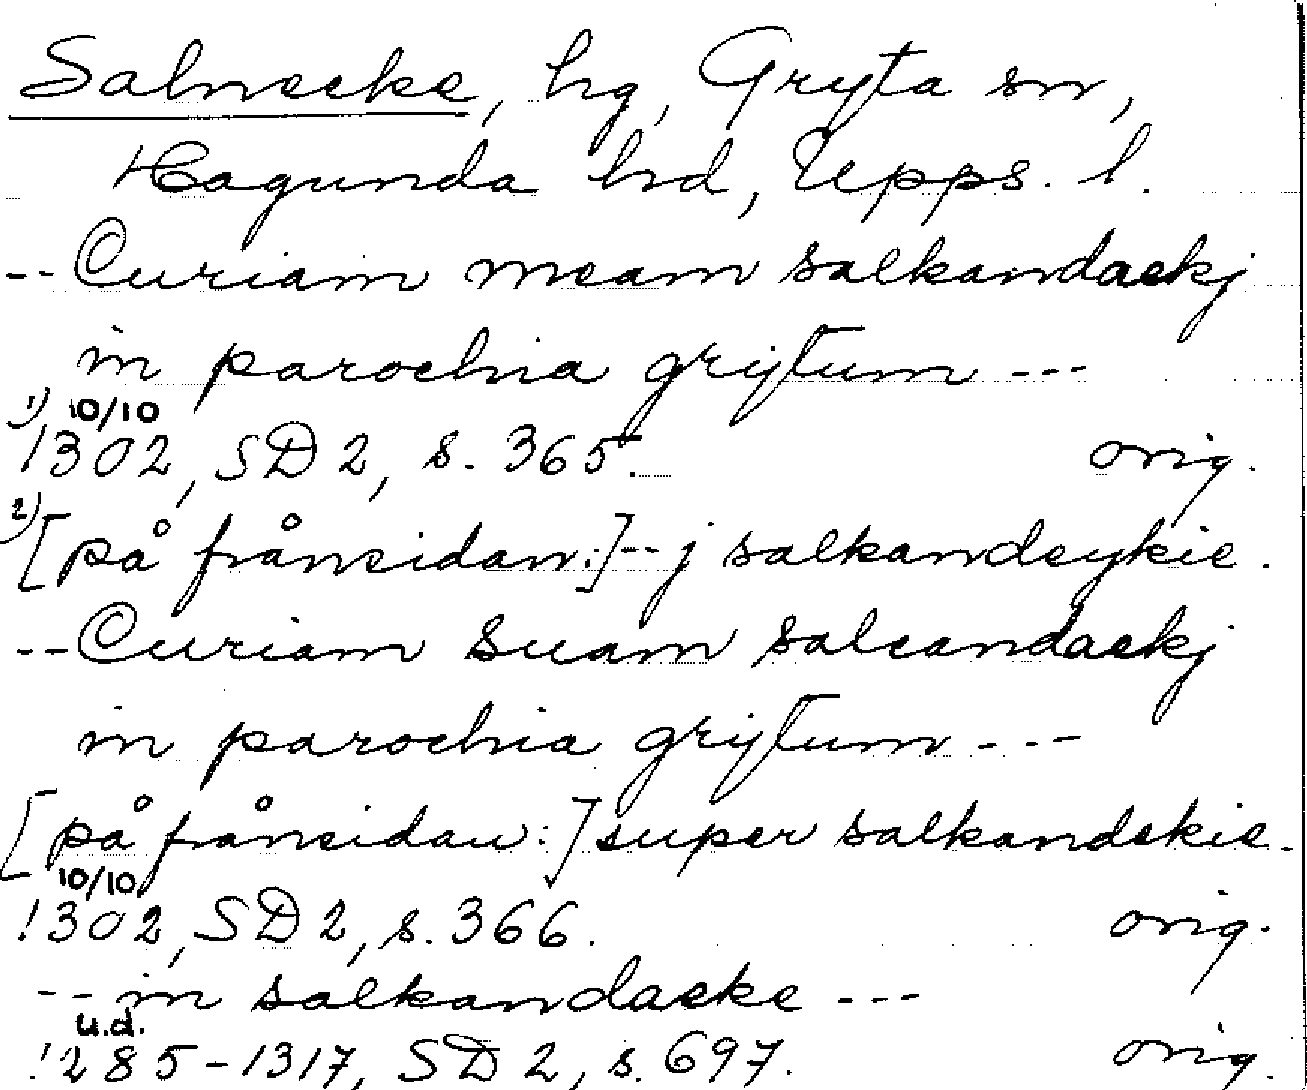 Salnecke, hg, Gryta sn,
Hagunda hd, Upps. l.
--Curiam meam salkandaekj
in parochia grijtum ---
1) 10/10
1302, SD 2, s. 365. orig.
2) [på frånsidan:]--j salkandeykie.
--Curiam suam salcandaekj
in parochia grijtum ---
[på frånsidan:] super salkandekie.
10/10
1302, SD 2, s. 366. orig.
-- in salkandaeke ---
u.d.
1285-1317, SD 2, s. 697. orig.